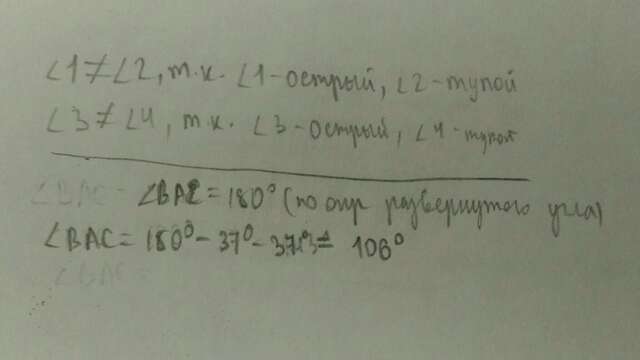 ∠1≠∠2, т.к. ∠1-острый, ∠2-тупой
∠3≠∠4, т.к. ∠3-острый, ∠4-тупой
∠BAC - ∠BAE=180° (по опр развернутого угла)
∠BAC=180°-37°-37°= 106°
∠BAC=